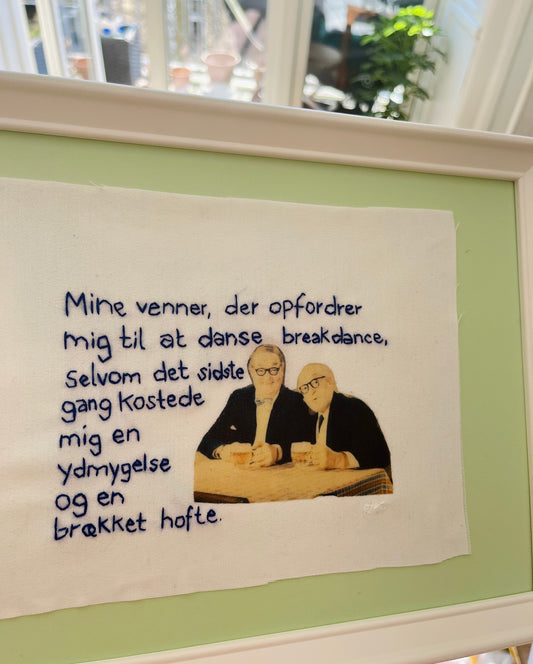 Mine venner, der opfordrer
mig til at danse breakdance,
selvom det sidste
gang kostede
mig en
ydmygelse
og en
brækket hofte.